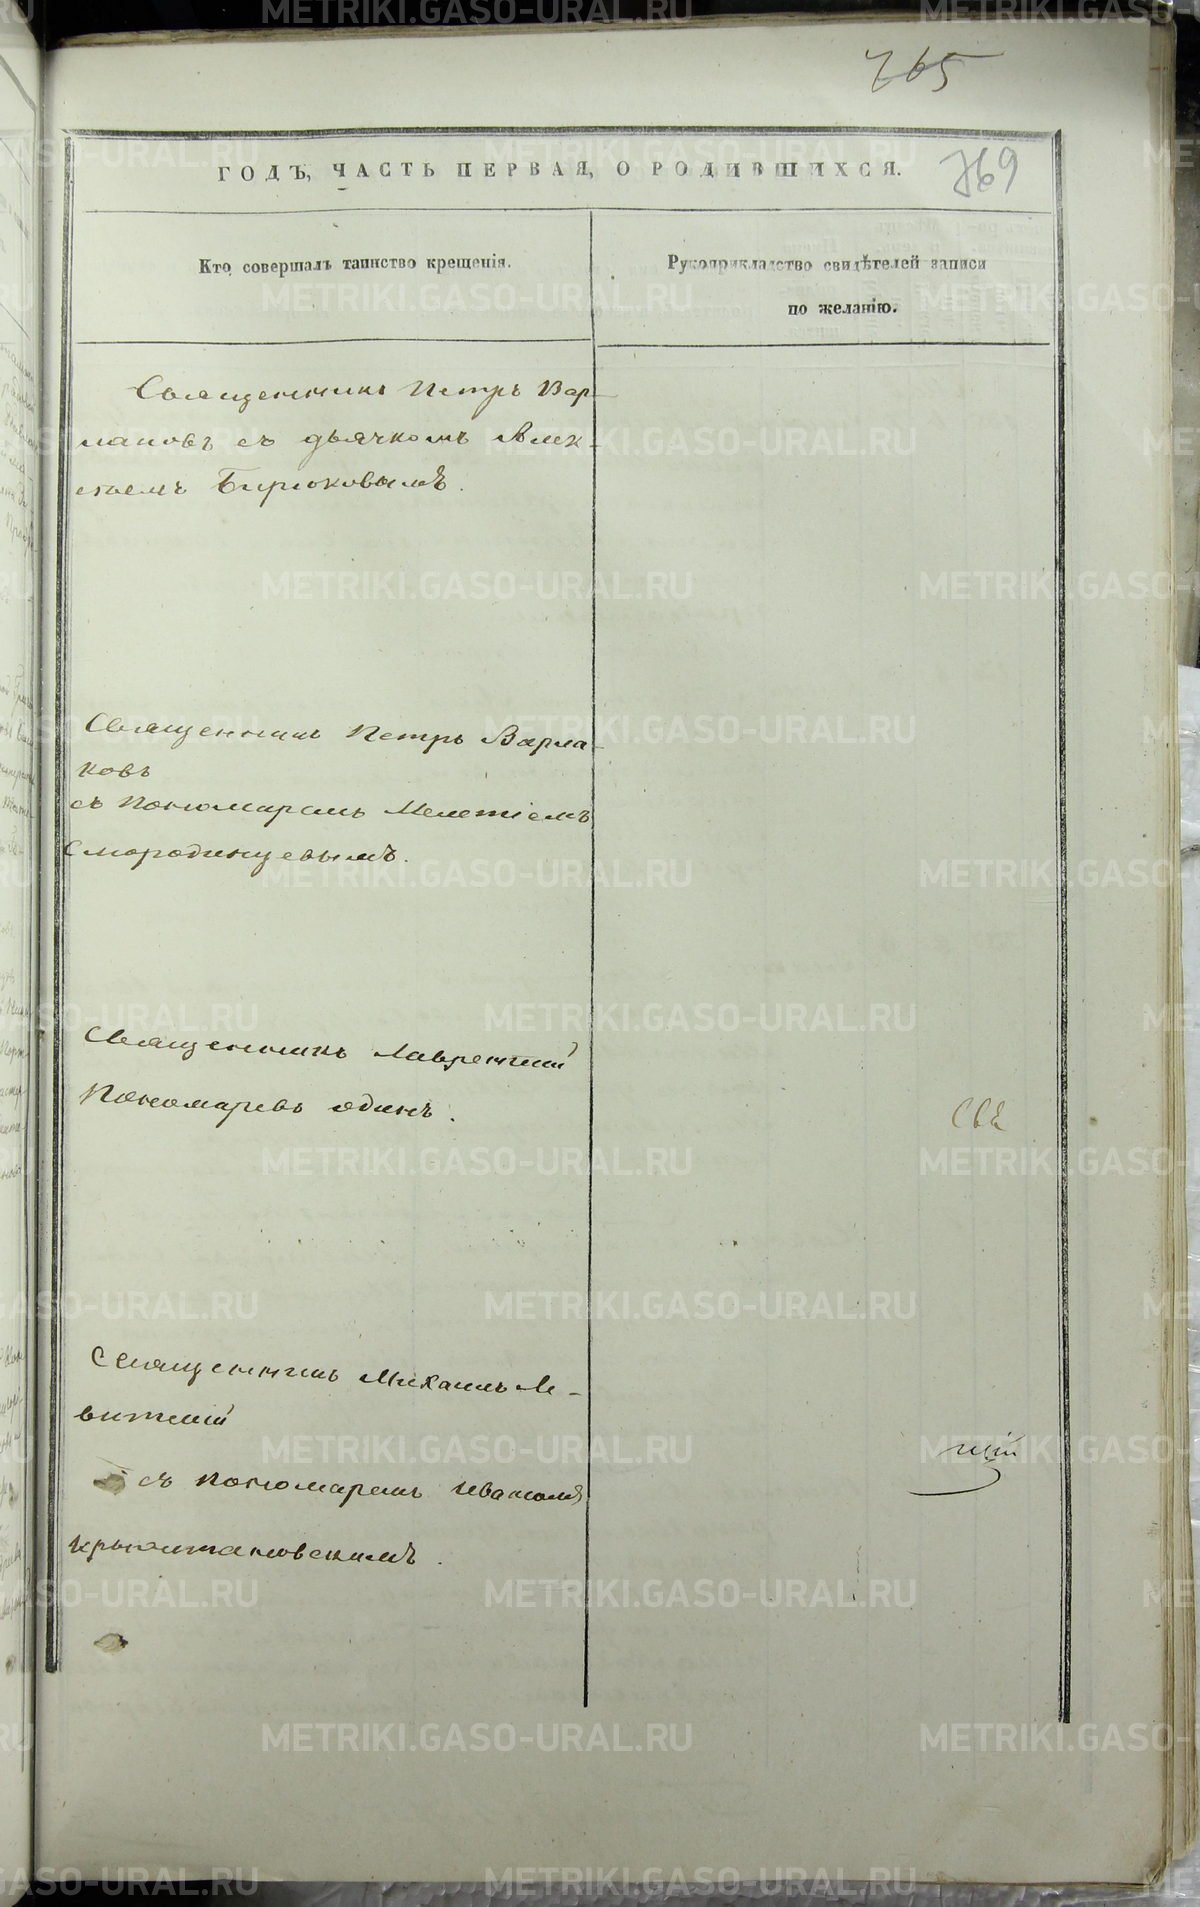 765
ГОДЪ, ЧАСТЬ ПЕРВАЯ, О РОДИВШИХСЯ.
769
Кто совершалъ таинство крещенія.
Рукоприкладство свидѣтелей записи
по желанію.
Священникъ Петръ Вар-
лаковъ съ дьячкомъ Алек-
сѣемъ Бирюковымъ.
Священникъ Петръ Варла-
ковъ
съ Пономаремъ Мелетіемъ
Смородинцевымъ.
Священникъ Лаврентий
Пономаревъ одинъ.
Свя
Священникъ Михаилъ Ле-
витский
щій
съ Пономаремъ Иваномъ
METRIKI.GASO-URAL.RU